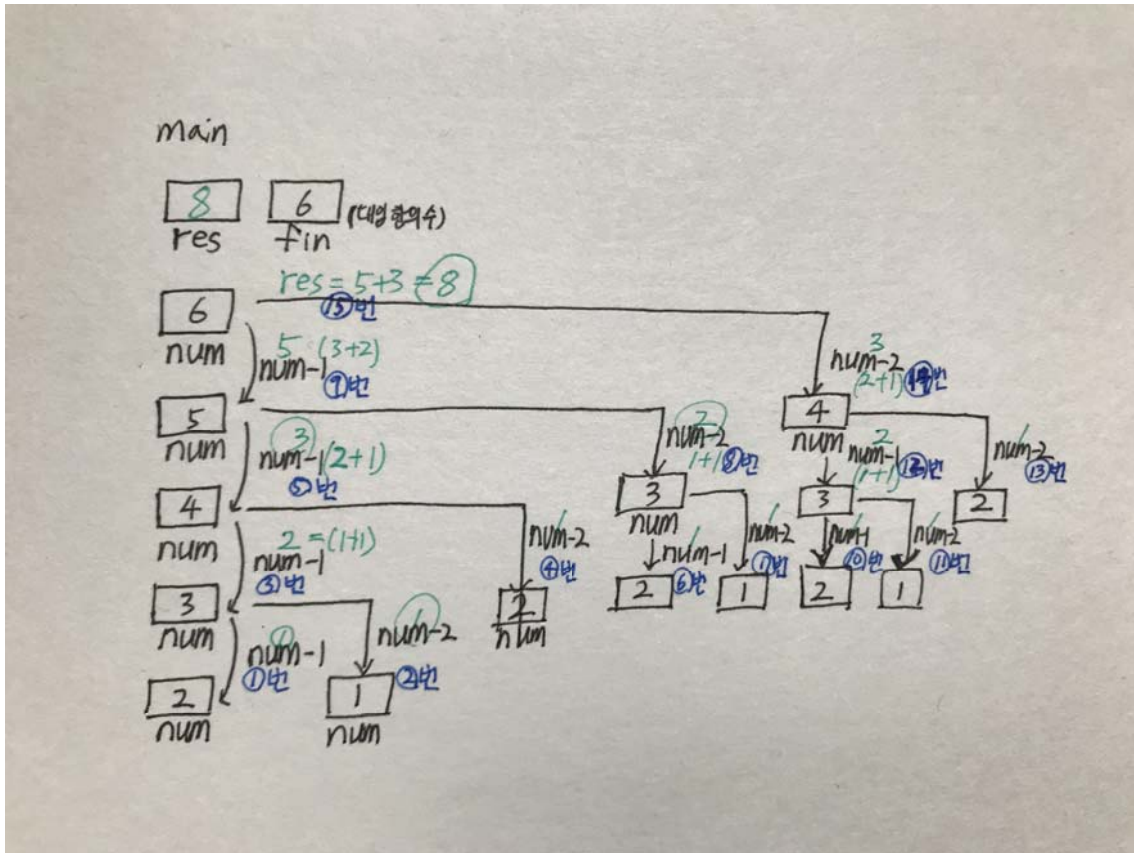 main
8 6
res fin
res = 5+3 = 8
⑮번
6
num
5 (3+2)
num-1
⑨번
3
num-2
(2+1) ⑭번
5
num
3
num-1 (2+1)
⑤번
2
num-2
1+1 ⑧번
4
num
2
num-1
(1+1) ⑫번
1
num-2
⑬번
4
num
2 = (1+1)
num-1
③번
1
num-2
④번
3
num
1
num-1
⑥번
1
num-2
⑦번
3
1
num-1
⑩번
1
num-2
⑪번
2
3
num
1
num-1
①번
1
num-2
②번
2
num
2
1
2
1
2
num
1
num